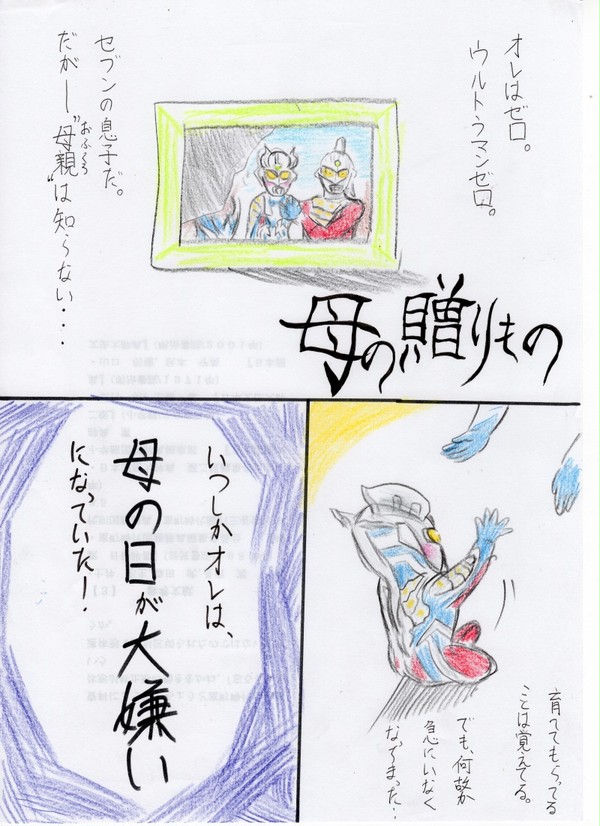 オレはゼロ。
ウルトラマンゼロ。
セブンの息子だ。
だがー"母親"は知らない・・・・
おふくろ
母の贈りもの
育ててもらってる
ことは覚えてる。
でも、何故か
急にいなく
なってまった・・
いつしかオレは、
母の日が大嫌い
になっていた！